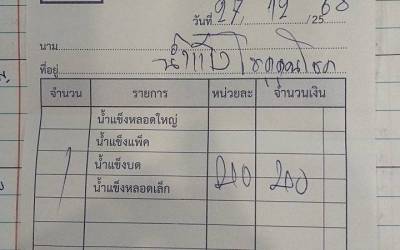 วันที่ 27, 12 / 25 60
นาม น้ำแข็ง
ที่อยู่
จำนวน รายการ หน่วยละ จำนวนเงิน
น้ำแข็งหลอดใหญ่
น้ำแข็งแพ็ค
1 น้ำแข็งบด
น้ำแข็งหลอดเล็ก 40 40